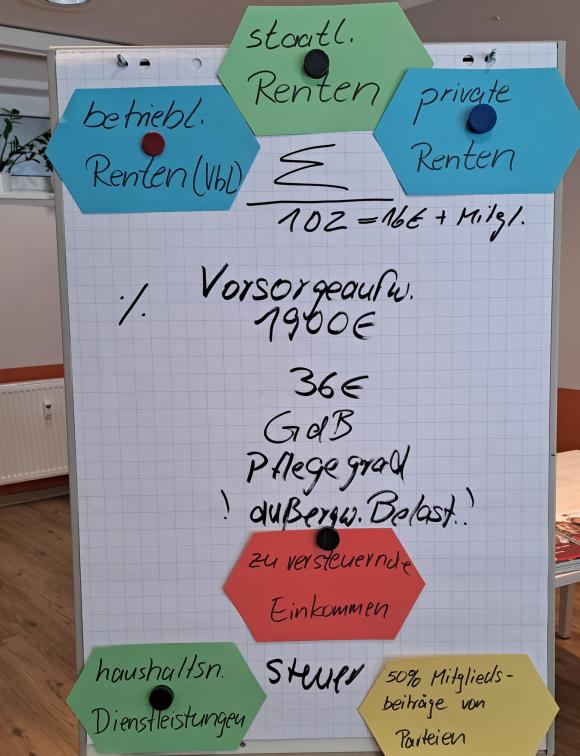 staatl.
Renten
betriebl.
Renten (Vbl)
private
Renten
Σ
102 = 16€ + Mitgl.
./. Vorsorgeaufw.
1900€
36€
GdB
Pflegegrad
! außergw. Belast.!
zu versteuernde
Einkommen
haushaltsn.
Dienstleistungen
Steuer
50% Mitglieds-
beiträge von
Parteien